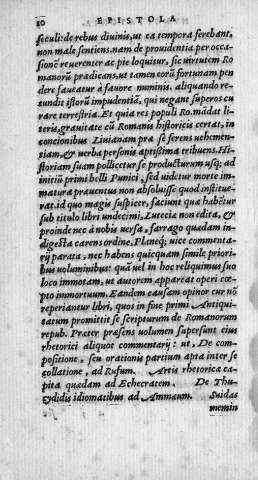 10 EPISTOLA
seculi: de rebus diuinis, ut ea tempora ferebant,
non male sentiens. nam de prouidentia per occa-
sionē reuerenter ac pie loquitur, sic uirtutem Ro
manorū prædicans, ut tamen eorū fortunam pen
dere faueatur à fauore numinis. aliquando re-
tundit istorū impudentiā, qui negant superos cu
rare terrestria. Et quia res populi Ro. mādat li-
teris, grauitate cū Romanis historicis certat, in
concionibus Liuianam præ se ferens uehemen-
tiam, & uerba personis aptissima tribuens. Hi-
storiam suam pollicetur se producturum usq; ad
initiū primi belli Punici, sed uidetur morte im-
matura præuentus non absoluisse quod institue-
rat. id quo magis suspicer, faciunt quæ habētur
sub titulo libri undecimi, Lutecia non edita, &
proinde nec à nobis uersa, farrago quædam in-
digesta carens ordine, Planeq; uice commenta-
rij parata, nec habens quicquam simile priori-
bus uoluminibus: quā uel in hoc reliquimus suo
loco immotam, ut autorem appareat operi cœ-
pto immortuum. Eandem causam opinor cur nō
reperiantur libri, quos in fine primi Antiqui-
tatum promittit se scripturum de Romanorum
repub. Præter præsens uolumen supersunt eius
rhetorici aliquot commentarij: ut, De com-
positione, seu orationis partium apta inter se
collatione, ad Rufum. Artis rhetoricæ ca-
pita quædam ad Echecratem. De Thu-
cydidis idiomatibus ad Ammæum. Suidas
memin